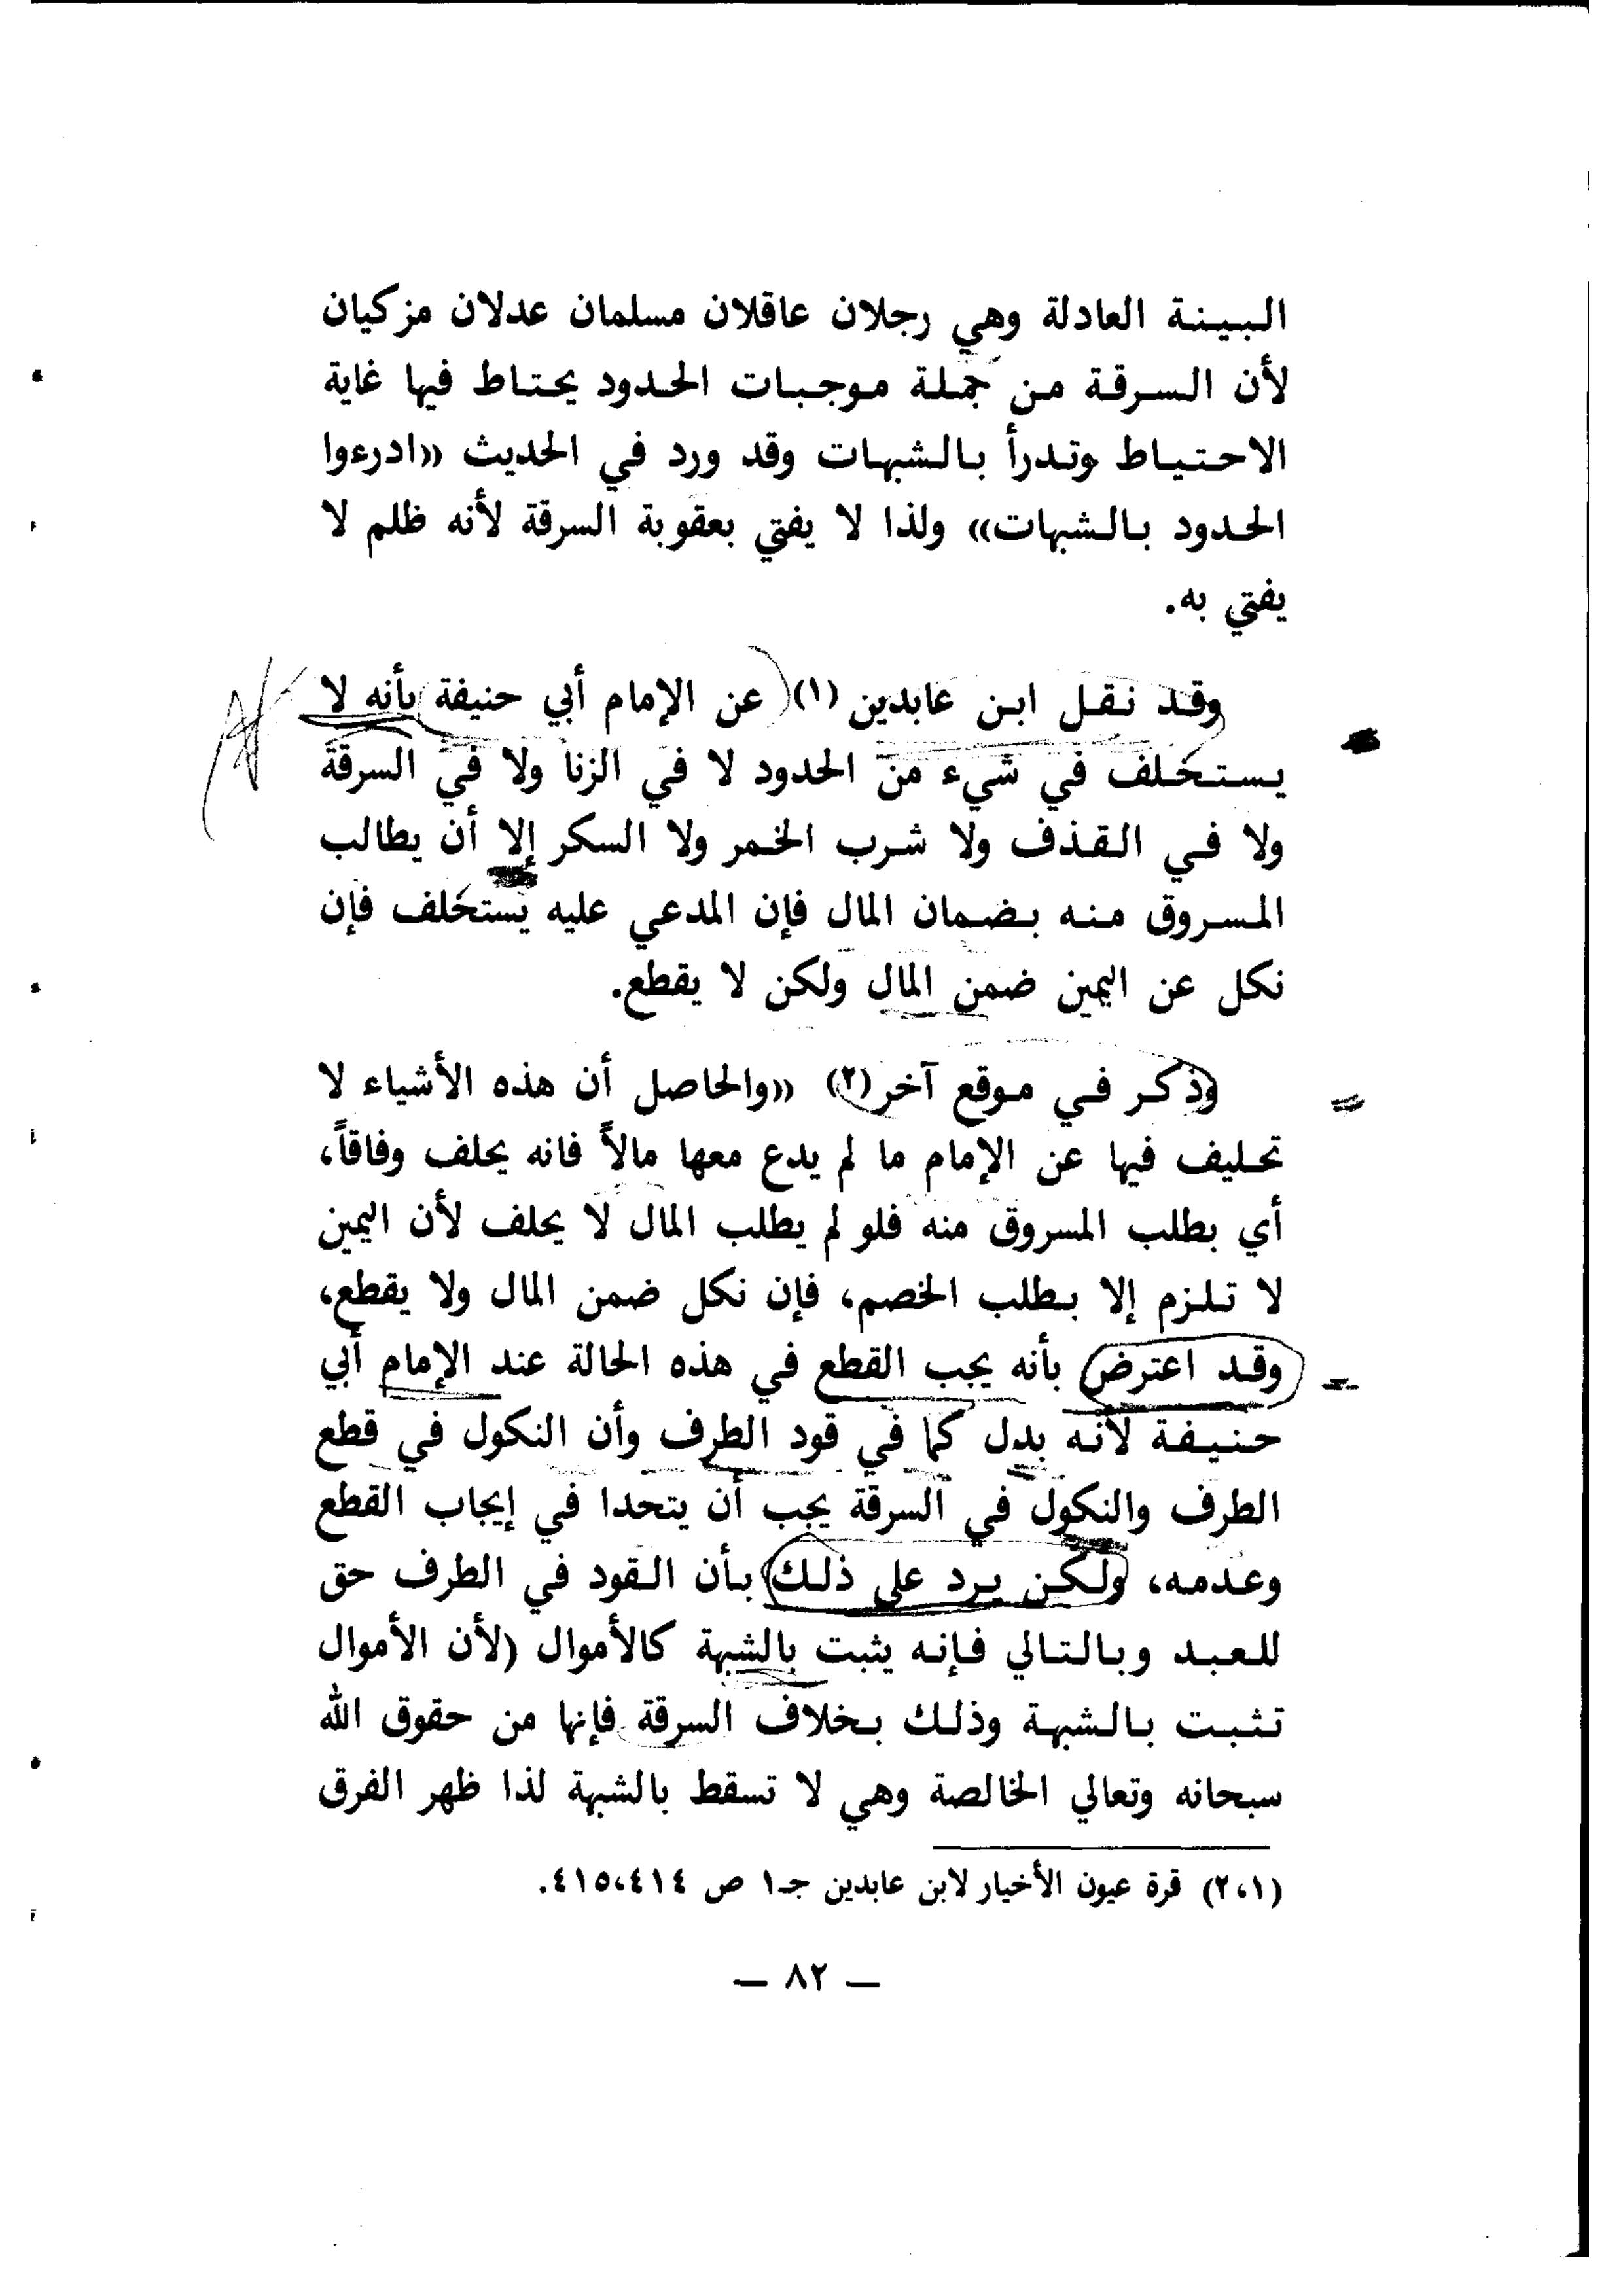 البينة العادلة وهي رجلان عاقلان مسلمان عدلان مزكيان
لأن السرقة من جملة موجبات الحدود يحتاط فيها غاية
الاحتياط وتدرأ بالشبهات وقد ورد في الحديث «ادرءوا
الحدود بالشبهات» ولذا لا يفتي بعقوبة السرقة لأنه ظلم لا
يفتي به.
وقد نقل ابن عابدين (١) عن الإمام أبي حنيفة بأنه لا
يستحلف في شيء من الحدود لا في الزنا ولا في السرقة
ولا في القذف ولا شرب الخمر ولا السكر إلا أن يطالب
المسروق منه بضمان المال فإن المدعي عليه يستحلف فإن
نكل عن اليمين ضمن المال ولكن لا يقطع.
وذكر في موقع آخر (٢) «والحاصل أن هذه الأشياء لا
تحليف فيها عن الإمام ما لم يدع معها مالاً فانه يحلف وفاقاً،
أي بطلب المسروق منه فلو لم يطلب المال لا يحلف لأن اليمين
لا تلزم إلا بطلب الخصم، فإن نكل ضمن المال ولا يقطع،
وقد اعترض بأنه يجب القطع في هذه الحالة عند الإمام أبي
حنيفة لأنه بدل كما في قود الطرف وأن النكول في قطع
الطرف والنكول في السرقة يجب أن يتحدا في إيجاب القطع
وعدمه، ولكن يرد على ذلك بأن القود في الطرف حق
للعبد وبالتالي فإنه يثبت بالشبهة كالأموال (لأن الأموال
تثبت بالشبهة وذلك بخلاف السرقة فإنها من حقوق الله
سبحانه وتعالي الخالصة وهي لا تسقط بالشبهة لذا ظهر الفرق
(٢،١) قرة عيون الأخيار لابن عابدين جـ١ ص ٤١٥،٤١٤.
— ٨٢ —